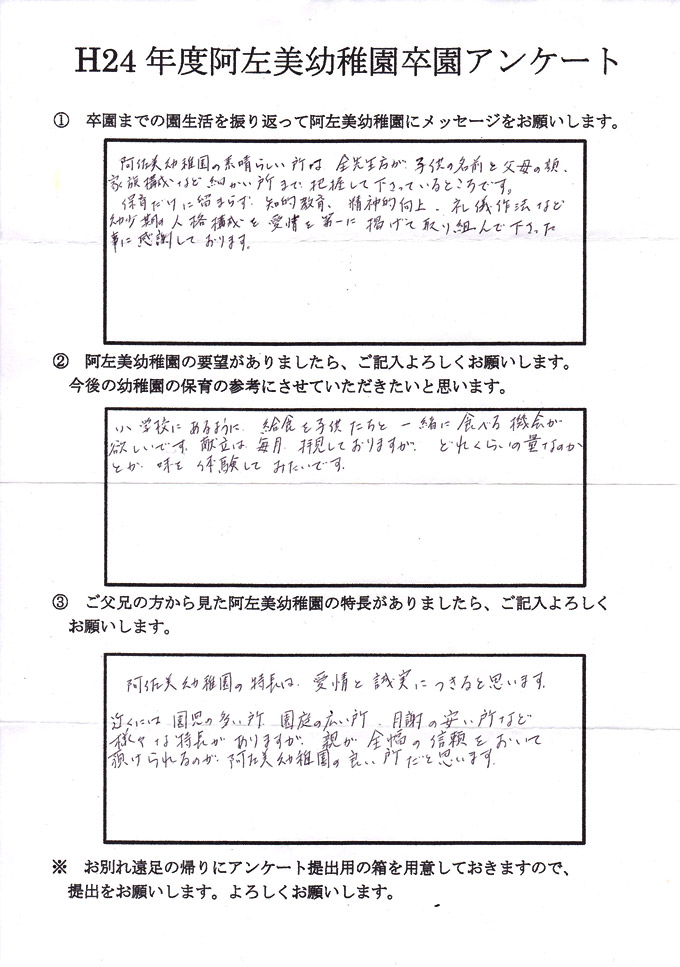 H24年度阿左美幼稚園卒園アンケート
① 卒園までの園生活を振り返って阿左美幼稚園にメッセージをお願いします。
阿佐美幼稚園の素晴らしい所は、全先生方が、子供の名前と父母の顔、
家族構成など細かい所まで把握して下さっているところです。
保育だけに留まらず、知的教育、精神的向上、礼儀作法など
幼少期の人格構成を愛情を第一に掲げて取り組んで下さった
事に感謝しております。
② 阿左美幼稚園の要望がありましたら、ご記入よろしくお願いします。
今後の幼稚園の保育の参考にさせていただきたいと思います。
小学校にあるように、給食を子供たちと一緒に食べる機会が
欲しいです。献立は毎月、拝見しておりますが、どれくらいの量なのか
とか、味を体験してみたいです。
③ ご父兄の方から見た阿左美幼稚園の特長がありましたら、ご記入よろしく
お願いします。
阿佐美幼稚園の特長は、愛情と誠実につきると思います。
近くには園児の多い所、園庭の広い所、月謝の安い所など
様々な特長がありますが、親が全幅の信頼をおいて
預けられるのが、阿左美幼稚園の良い所だと思います。
※ お別れ遠足の帰りにアンケート提出用の箱を用意しておきますので、
提出をお願いします。よろしくお願いします。